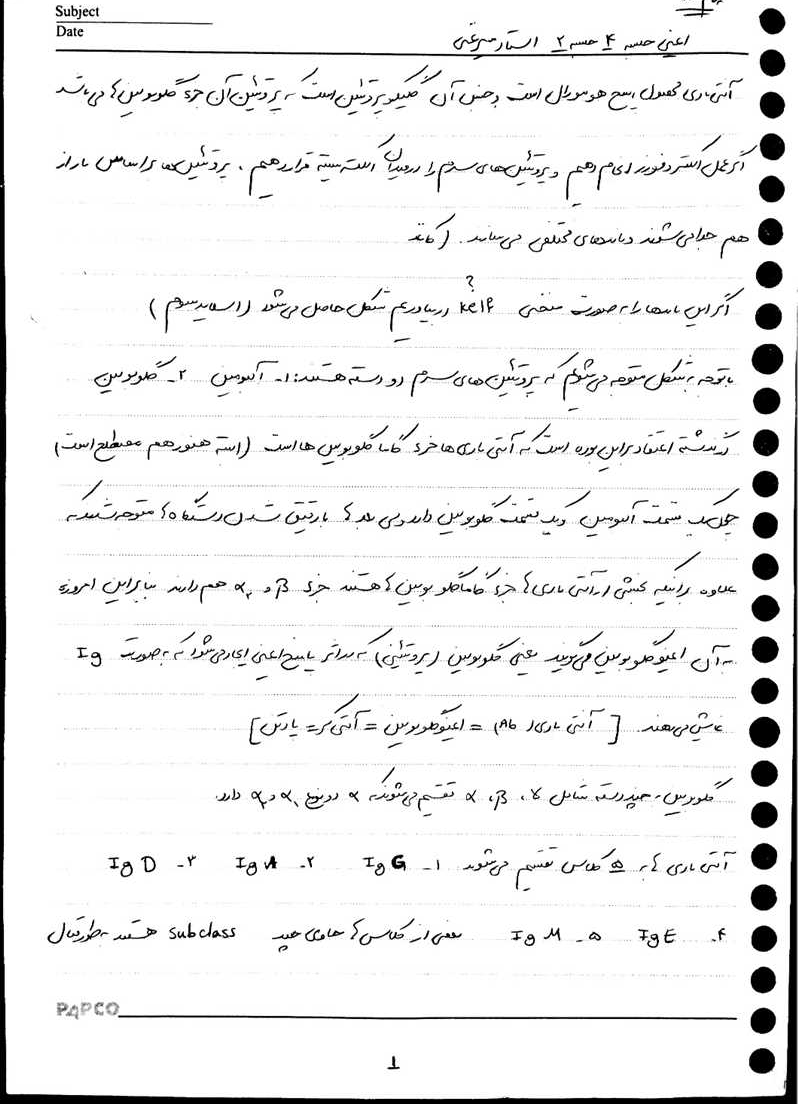 Subject
Date
ایمنی جلسه ۴ جلسه ۲ استاد میرغنی
آنتی بادی محصول پاسخ هومورال است و جنس آن گلیکوپروتئین است که پروتئین آن جزء گلوبولین ها می باشد
اگر عمل الکتروفورز انجام دهیم و پروتئین های سرم را در میدان الکتریسیته قرار دهیم . پروتئین ها بر اساس بار از
هم جدا می شوند و باندهای مختلفی می سازند . (کاتد
?
اگر این باندها را به صورت منحنی در بیاوریم شکل حاصل می شود (اسلاید سوم)
با توجه به شکل متوجه می شویم که پروتئین های سرم دو دسته هستند: ۱- آلبومین ۲- گلوبولین
در گذشته اعتقاد بر این بوده است که آنتی بادی ها جزء گاما گلوبولین ها است (البته هنوز هم مصطلح است)
یک قسمت آلبومین و یک قسمت گلوبولین دارد ولی بعد ها با دقیق شدن دستگاه ها متوجه شدند که
علاوه بر اینکه بخشی از آنتی بادی ها جزء گاما گلوبولین ها هستند جزء β و α₂ هم دارند بنابراین امروزه
به آن ایمنوگلوبولین می گویند یعنی گلوبولین (پروتئینی) که در اثر پاسخ ایمنی ایجاد می شود که به صورت Ig
نمایش می دهند [ آنتی بادی (Ab) = ایمنوگلوبولین = آنتی کر = پادتن ]
گلوبولین به چند دسته شامل γ ، β ، α تقسیم می شوند که α دو نوع α₁ و α₂ دارد.
آنتی بادی ها به ۵ کلاس تقسیم می شوند ۱- IgG ۲- IgA ۳- IgD
۴- IgE ۵- IgM بعضی از کلاس ها حاوی چند subclass هستند به طور مثال
PAPCO
1